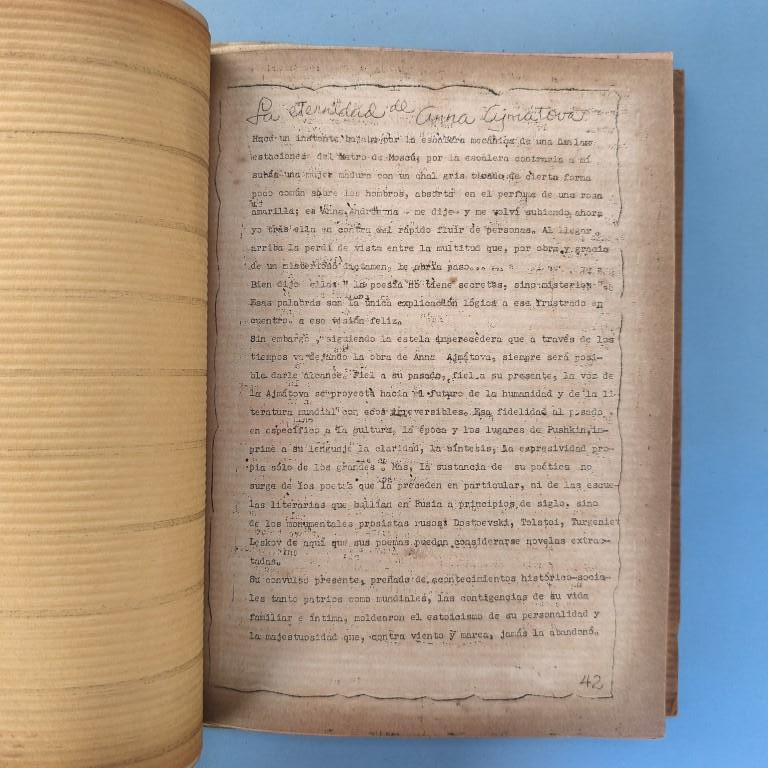 La eternidad de Anna Ajmátova
Hace un instante bajaba por la escalera mecánica de una de las
estaciones del Metro de Moscú; por la escalera contraria a mí
subía una mujer madura con un chal gris tocado de cierta forma
poco común sobre los hombros, absorta en el perfume de una rosa
amarilla; es Anna Andréevna - me dije- y me volví subiendo ahora
yo tras ella en contra del rápido fluir de personas. Al llegar
arriba la perdí de vista entre la multitud que, por obra y gracia
de un misterioso dictamen, le abría paso...
Bien dijo ella: " la poesía no tiene secretos, sino misterios"
Esas palabras son la única explicación lógica a ese frustrado en
cuentro. a esa visión feliz.
Sin embargo, siguiendo la estela imperecedera que a través de los
tiempos va dejando la obra de Anna Ajmátova, siempre será posi-
ble darle alcance. Fiel a su pasado, fiel a su presente, la voz de
la Ajmátova se proyecta hacia el futuro de la humanidad y de la li-
teratura mundial con ecos irreversibles. Esa fidelidad al pasado,
en específico a la cultura, la época y los lugares de Pushkin, im-
prime a su lenguaje la claridad, la síntesis, la espresividad pro-
pia sólo de los grandes. Mas, la sustancia de su poética no
surge de los poetas que la preceden en particular, ni de las escue-
las literarias que bullían en Rusia a principios de siglo, sino
de los monumentales prosistas rusos: Dostoevski, Tolstoi, Turgeniev
Leskov de aquí que sus poemas puedan considerarse novelas extrac-
tadas.
Su convulso presente, preñado de acontecimientos histórico-socia-
les tanto patrios como mundiales, las contigencias de su vida
familiar e íntima, moldearon el estoicismo de su personalidad y
la majestuosidad que, contra viento y marea, jamás la abandonó.
42